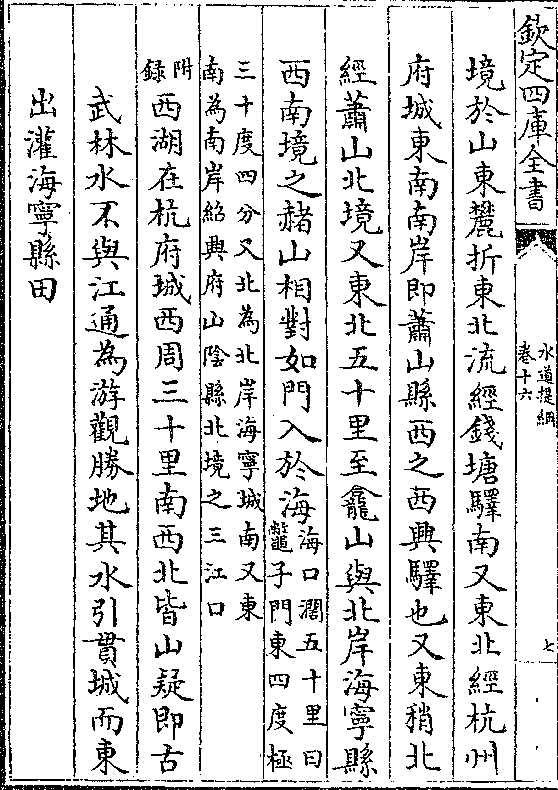 欽定四庫全書
水道提綱
卷十六
七
境於山東麓折東北流經錢塘驛南又東北經杭州
府城東南南岸即蕭山縣西之西興驛也又東稍北
經蕭山北境又東北五十里至龕山與北岸海寧縣
西南境之赭山相對如門入於海
海口濶五十里曰
鼈子門東四度極
三十度四分又北為北岸海寧城南又東
南為南岸紹興府山陰縣北境之三江口
附
録
西湖在杭府城西周三十里南西北皆山疑即古
武林水不與江通為游觀勝地其水引貫城而東
出灌海寧縣田